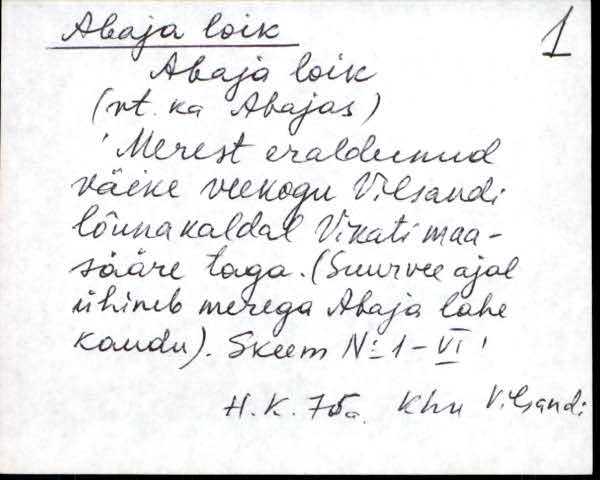 Abaja loik
1
Abaja loik
(vt. ka Abajas)
'Merest eraldunud
väike veekogu Vilsandi
lõunakaldal Vikati maa-
sääre taga. (Suurvee ajal
ühineb merega Abaja lahe
kaudu). Skeem № 1 - VI'
H. K. 75a. Khn Vilsandi